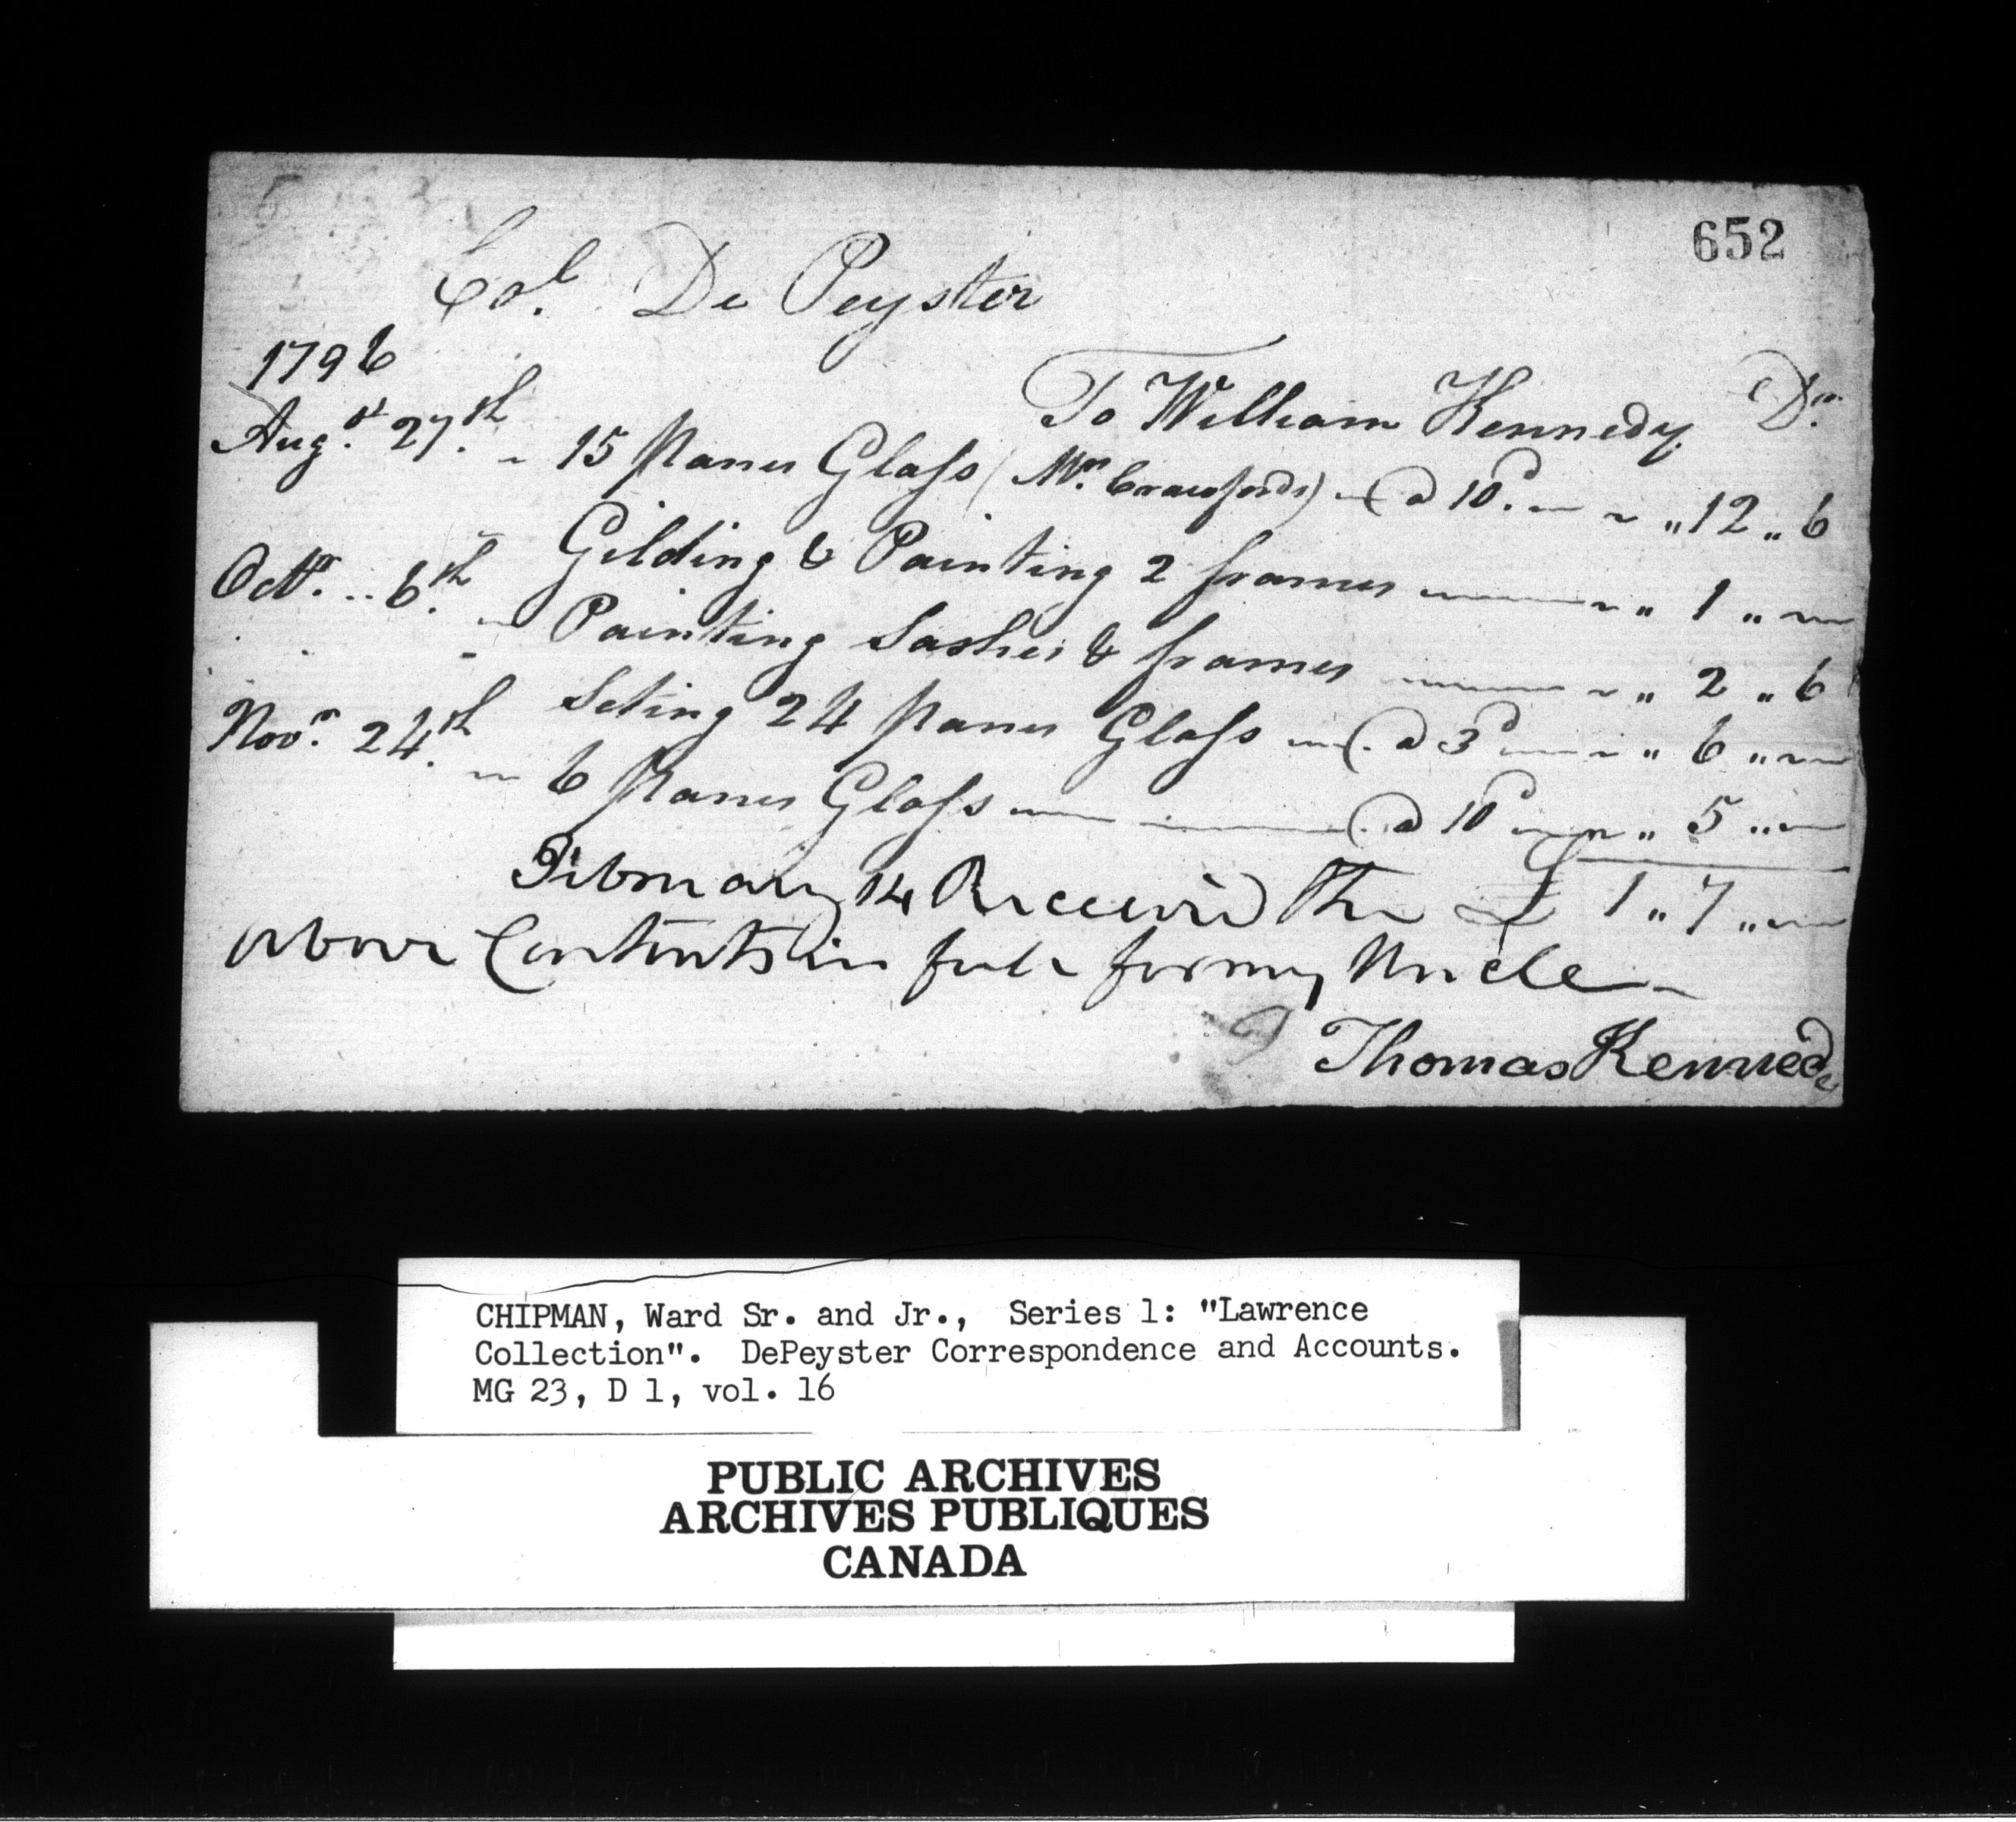 652
Col. De Peyster
1796
To William Kennedy Dr.
Augst. 27th. 15 Panes Glass (Mr. Crawfords) @ 10d. " 12 " 6
Gilding & Painting 2 frames " 1 "
Octr. 6th. Painting Sashes & frames " 2 " 6
Seting 24 Panes Glass @ 3d " 6 "
Novr. 24th. 6 Panes Glass @ 10d " 5 "
£ 1 " 7 "
Februariy 14 Receeivid The
above Contents in full for my Uncle
Thomas Kennedy
CHIPMAN, Ward Sr. and Jr., Series 1: "Lawrence
Collection". DePeyster Correspondence and Accounts.
MG 23, D 1, vol. 16
PUBLIC ARCHIVES
ARCHIVES PUBLIQUES
CANADA